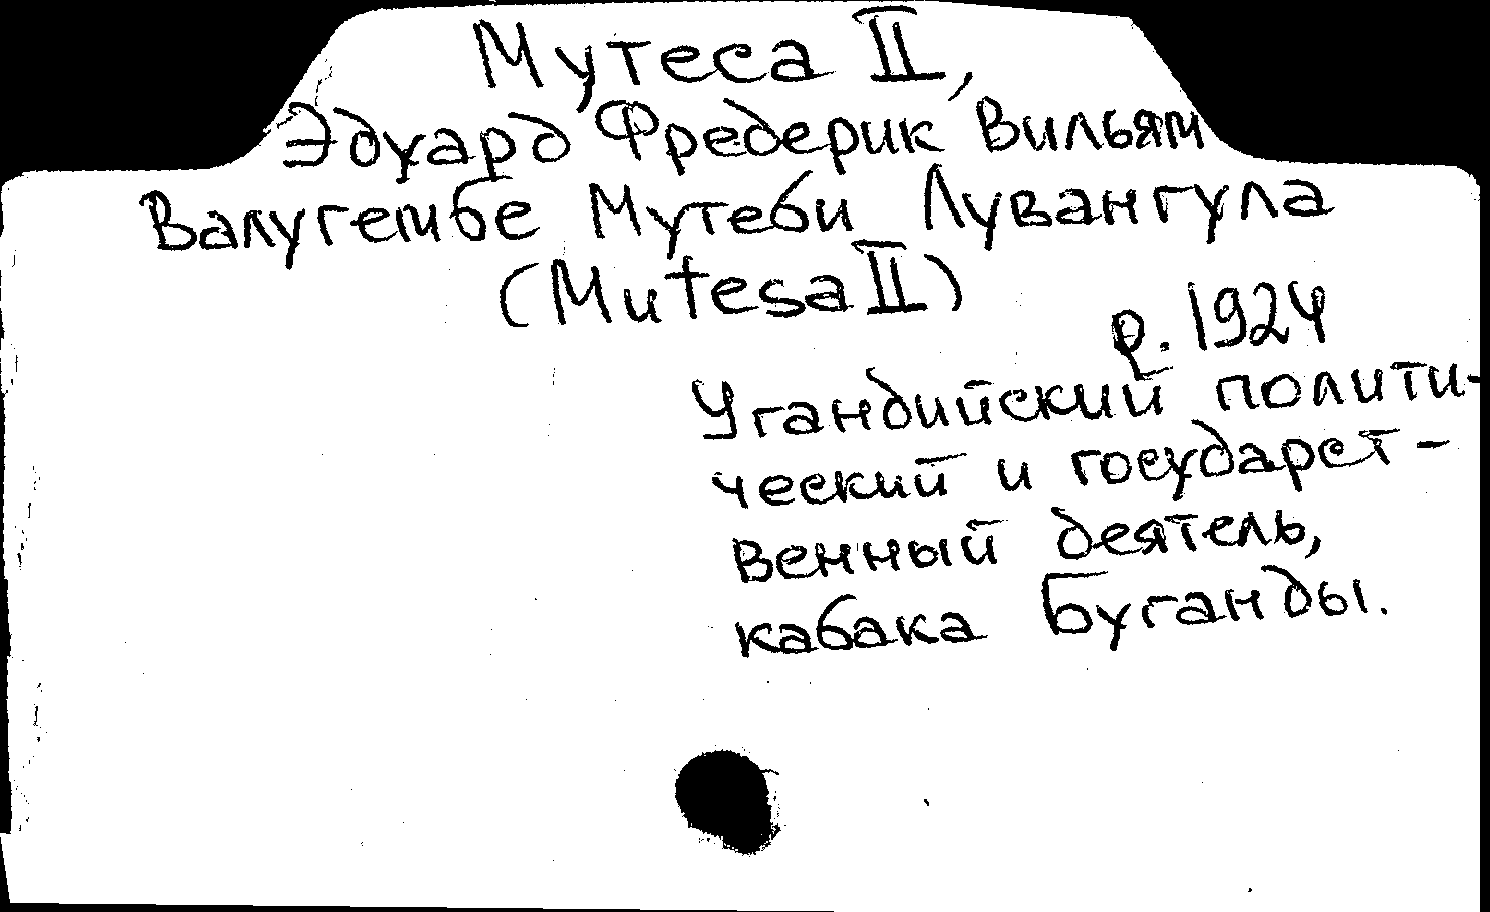 Мутеса II,
Эдуард Фредерик Вильям
Валугембе Мутеби Лувангула
(Mutesa II)
р. 1924
Угандийский полити-
ческий и государст-
венный деятель,
кабака Буганды.